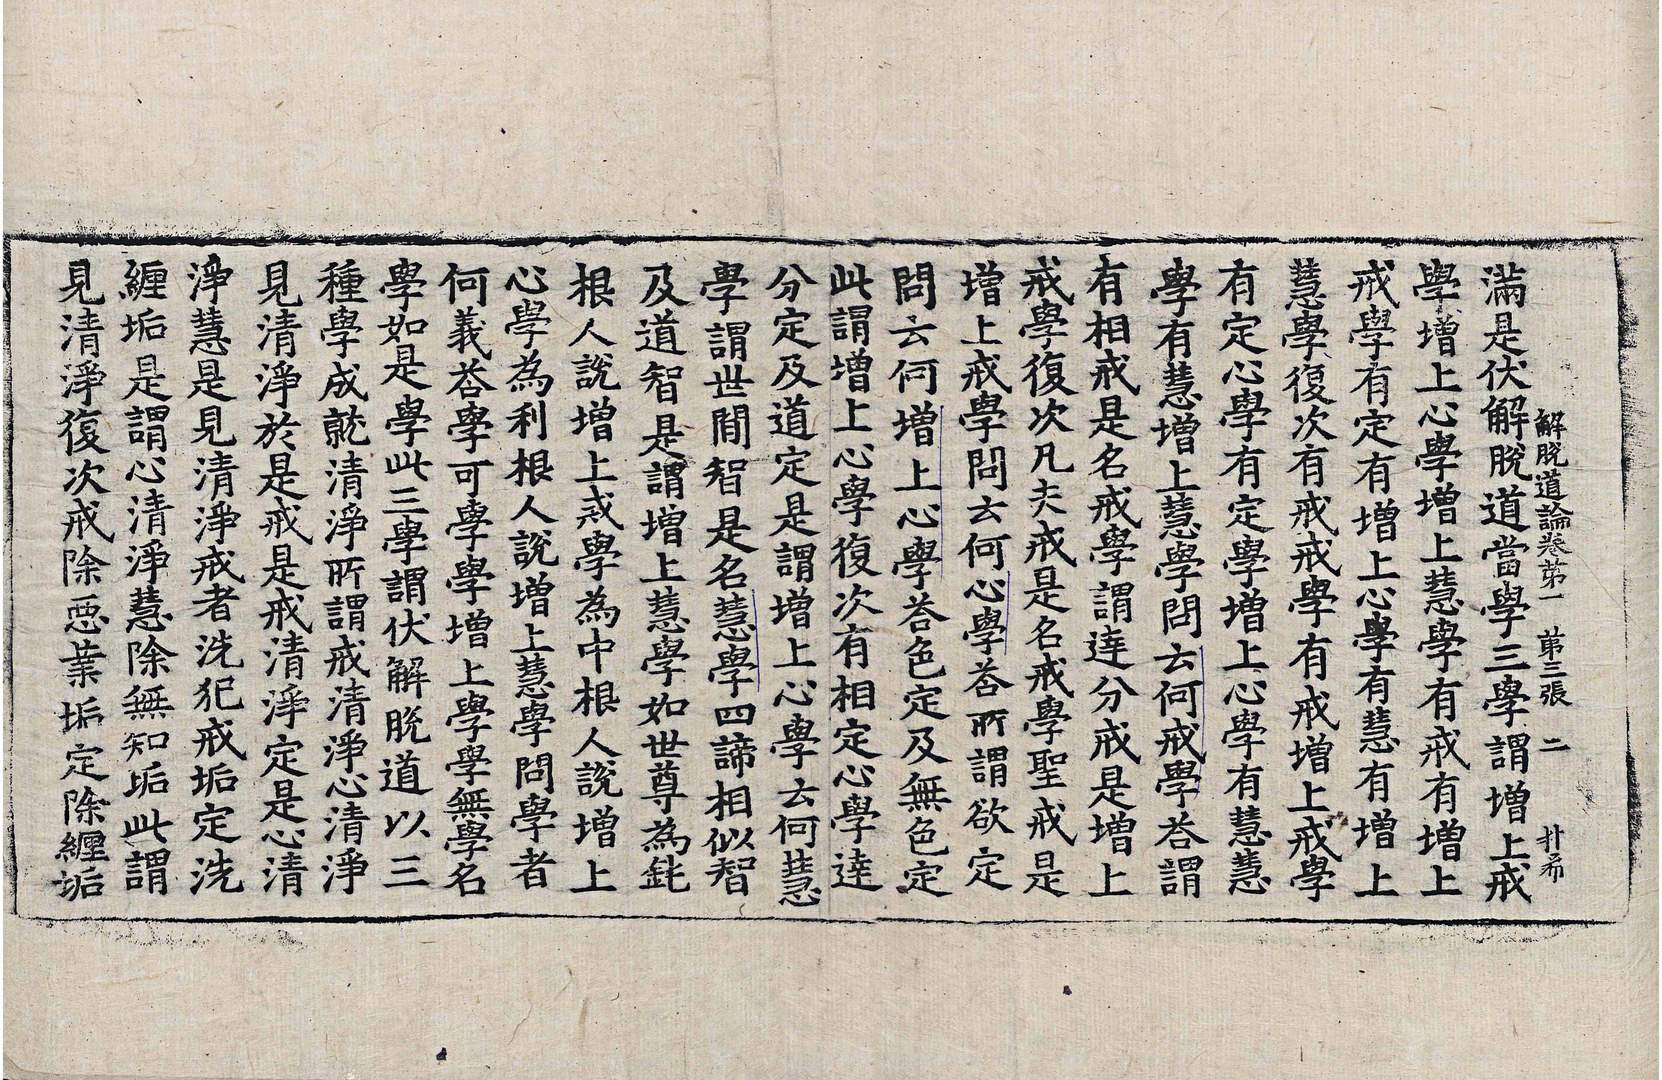 解脫道論卷苐一 苐三張 二 廾希
滿是伏解脫道當學三學謂增上戒
學增上心學增上慧學有戒有增上
戒學有定有增上心學有慧有增上
慧學復次有戒戒學有戒增上戒學
有定心學有定學增上心學有慧慧
學有慧增上慧學問云何戒學荅謂
有相戒是名戒學謂達分戒是增上
戒學復次凡夫戒是名戒學聖戒是
增上戒學問云何心學荅所謂欲定
問云何增上心學荅色定及無色定
此謂增上心學復次有相定心學達
分定及道定是謂增上心學云何慧
學謂世間智是名慧學四諦相似智
及道智是謂增上慧學如世尊為鈍
根人說增上戒學為中根人說增上
心學為利根人說增上慧學問學者
何義荅學可學學增上學學無學名
學如是學此三學謂伏解脫道以三
種學成就清淨所謂戒清淨心清淨
見清淨於是戒是戒清淨定是心清
淨慧是見清淨戒者洗犯戒垢定洗
纏垢是謂心清淨慧除無知垢此謂
見清淨復次戒除惡業垢定除纏垢